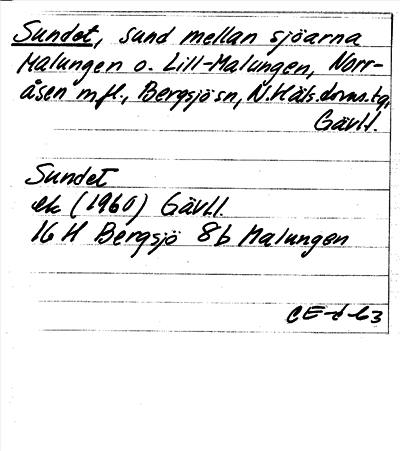 Sundet, sund mellan sjöarna
Malungen o. Lill-Malungen, Norr-
åsen m fl., Bergsjö sn, N. Häls. doms. tg,
Gävll.
Sundet
ek (1960) Gävll.
16 H Bergsjö 8b Malungen